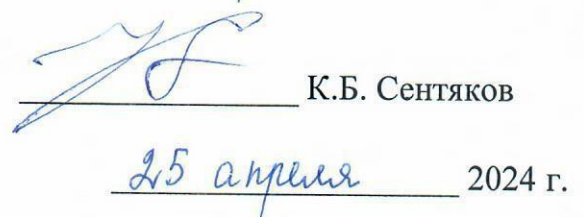 К.Б. Сентяков
25 апреля 2024 г.